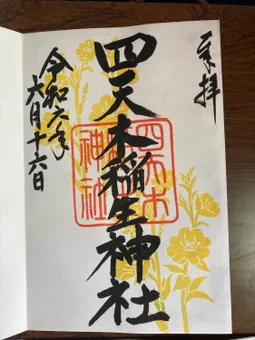 奉拝
四天木稲生神社
四天木
神社
令和六年
六月十六日